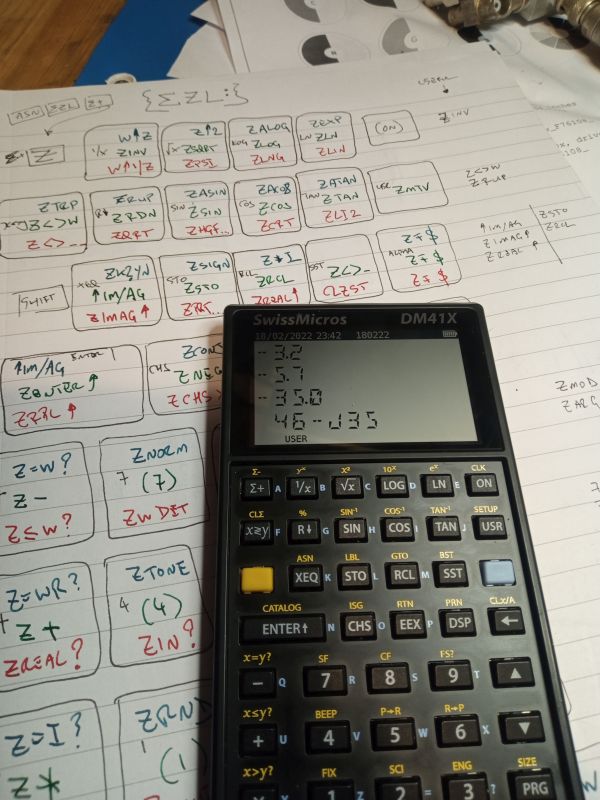 ASN ΣZL Σ+ {ΣZL:} USER
Σ+ Z
W↑Z
1/x ZINV
W↑1/Z
Z↑2
√x ZSQRT
ZPSI
ZALOG
LOG ZLOG
ZLNG
ZEXP
LN LN
ZLIN
(ON)
ZINV
ZTRP
Z<>W
Z<>...
ZRUP
R↓ ZRDN
ZQRT
ZASIN
SIN ZSIN
ZHGF...
ZACOS
COS ZCOS
ZCRT
ZATAN
TAN ZTAN
ZLI2
USR ZMTV
Z<>W
ZRUP
SHIFT
ZKZYN
XEQ ↑IM/AG
ZIMAG↑
ZSIGN
STO ZSTO
ZRT..
Z*I
RCL ZRCL
ZREAL↑
SST Z<>_
CLZST
Z∓$
ALPHA Z∓$
Z∓$
↑IM/AG
ZIMAG↑
ZREAL↑
ZSTO
ZRCL
↑IM/AG ENTER
ZENTER↑
ZCONJ
CHS ZNEG
ZCHS
ZMOD
ZARG
Z=W?
Z-
Z≤W?
ZNORM
7 (7)
ZWDET
Z=WR?
+ Z+
ZREAL?
ZTONE
4 (4)
ZIN?
Z=I?
Z*
ZRND
1 (1)
SwissMicros DM41X
18/02/2022 23:42 180222
- 3.2
- 5.7
- 35.0
46-J35
USER
Σ- yˣ x² 10ˣ eˣ CLK
Σ+ A 1/x B √x C LOG D LN E ON
CLΣ % SIN⁻¹ COS⁻¹ TAN⁻¹ SETUP
x≷y F R↓ G SIN H COS I TAN J USR
ASN LBL GTO BST
XEQ K STO L RCL M SST
CATALOG ISG RTN PRN CLx/A
ENTER↑ N CHS O EEX P DSP ←
x=y? SF CF FS?
− Q 7 R 8 S 9 T ▲
x≤y? BEEP P→R R→P
+ U 4 V 5 W 6 X ▼
x>y? FIX SCI ENG SIZE
× Y 1 Z 2 = 3 ? PRG